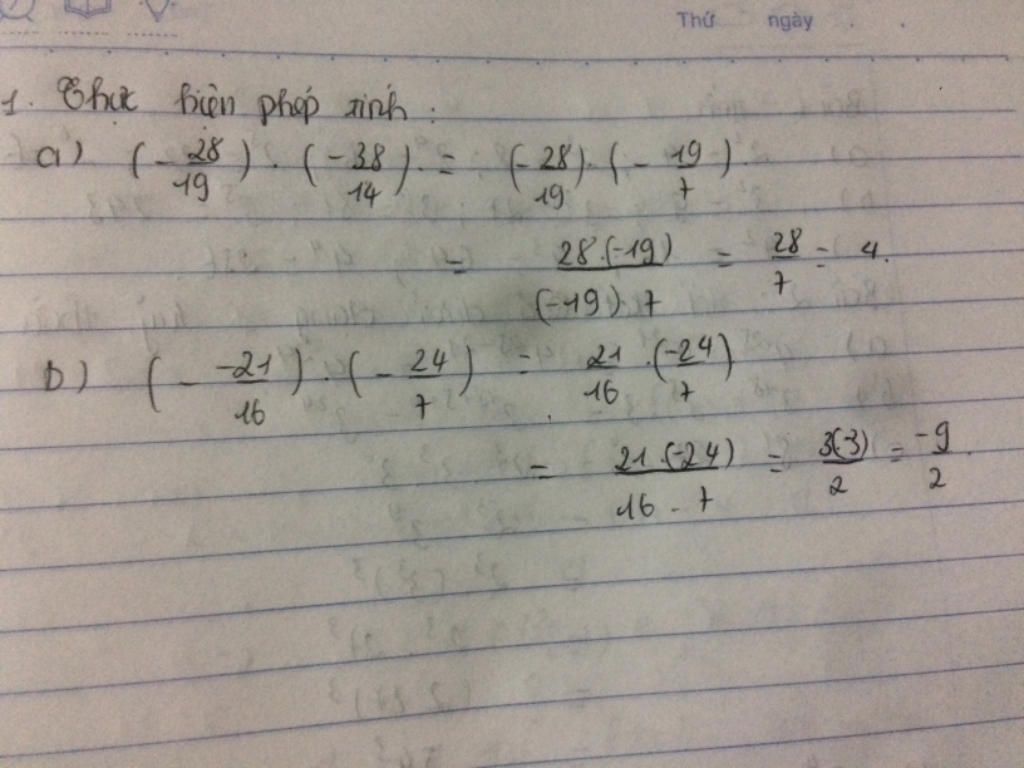 Thứ ngày
1. Thực hiện phép tính :
a) (-28/19) . (-38/14) = (-28/19) . (-19/7)
= 28.(-19)/(-19).7 = 28/7 = 4.
b) (- -21/16) . (- 24/7) = 21/16 . (-24/7)
= 21.(-24)/16.7 = 3(-3)/2 = -9/2.